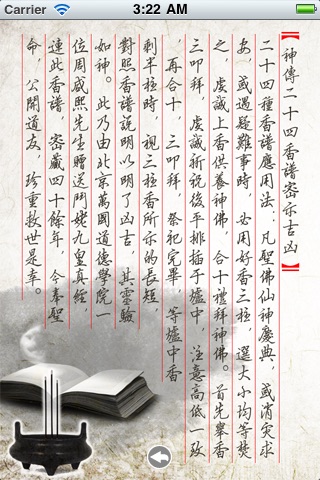 Carrier 3:22 AM
【神傳二十四香譜密示吉凶】
二十四種香譜應用法：凡聖佛仙神慶典，或消災求
安，或遇疑難事時，必用好香三柱，選大小均等焚
之，虔誠上香供養神佛，合十禮拜神佛。首先舉香
三叩拜，虔誠祈祝後平排插于爐中，注意高低一致
，再合十，三叩拜，祭祀完畢，等爐中香
剩半柱時，視三柱香所示的長短，
對照香譜說明以明了凶吉，其靈驗
如神。此乃由北京萬國道德學院一
位周威熙先生贈送鬥姥九皇真經，
連此香譜，密藏四十餘年，今奉聖
命，公開道友，珍重救世是幸。